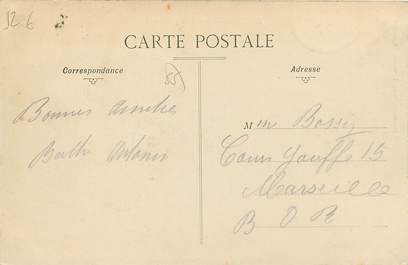 32-6
CARTE POSTALE
Correspondance
Adresse
55
Bonnes Amitiés
Berthe Antonin
Mme Bossy
Cours Jouffe 15
Marseille
B D R